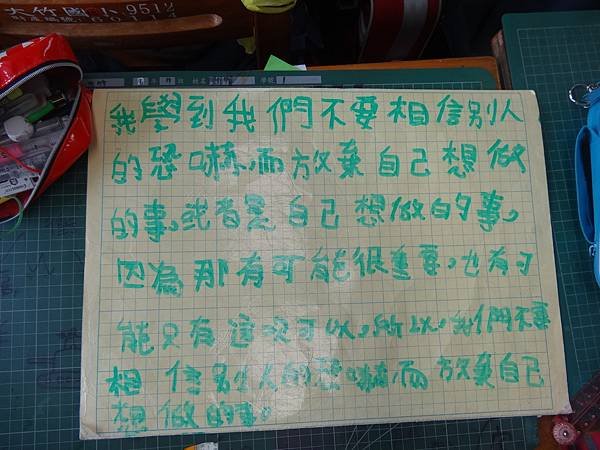 大竹國小9512
我學到我們不要相信別人
的恐嚇,而放棄自己想做
的事,或者是自己想做的事。
因為那有可能很重要,也有可
能只有這次可以,所以,我們不要
相信別人的恐嚇而放棄自己
想做的事。